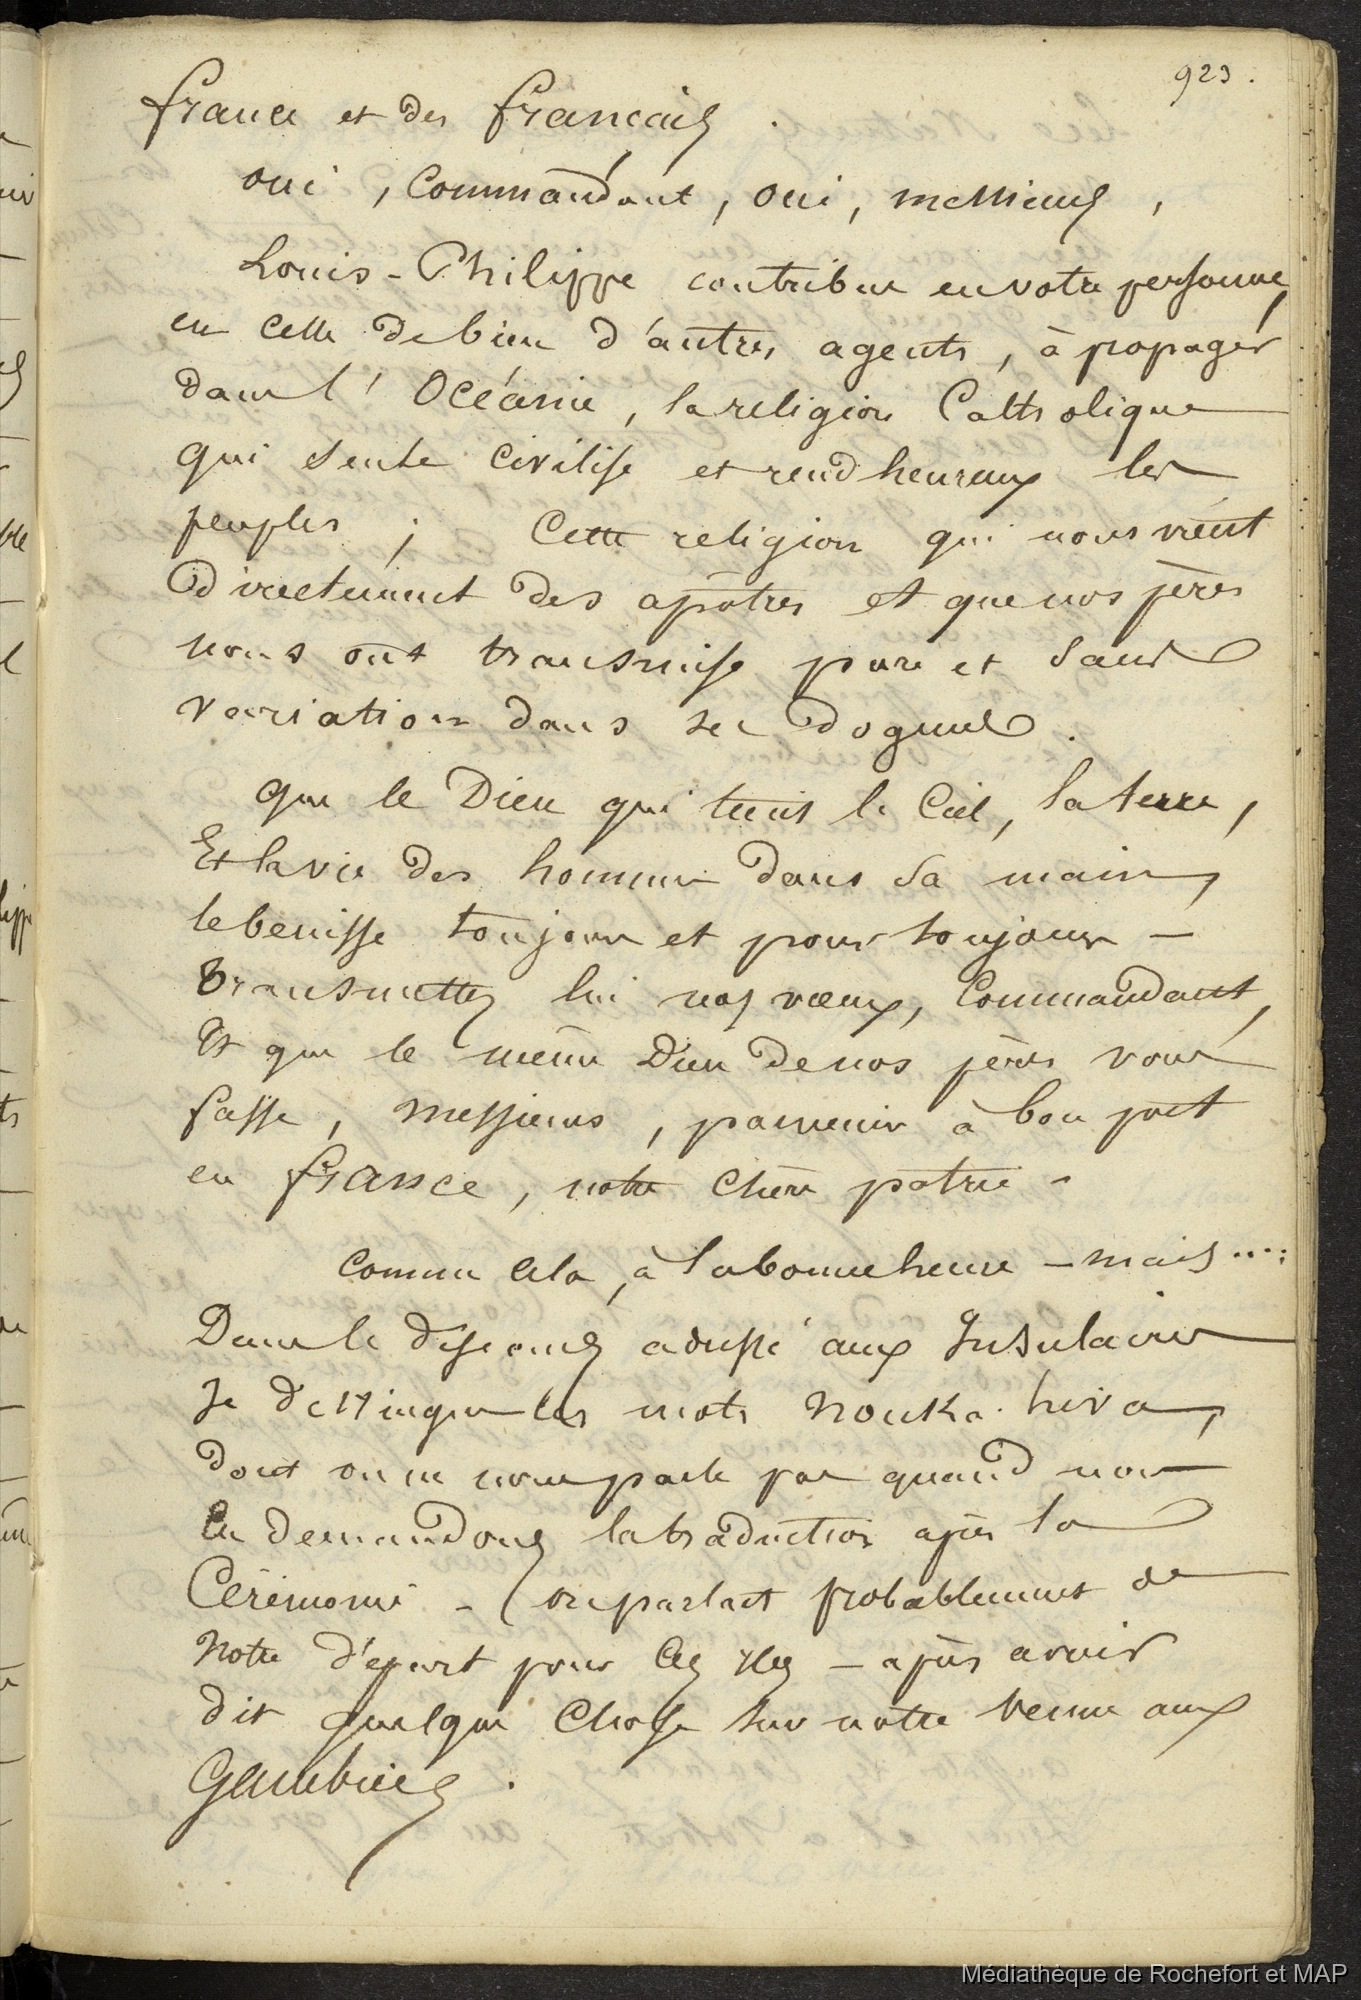 923.
france et des français.
oui, Commandant, oui, messieurs,
Louis-Philippe contribue en votre personne,
en celle de bien d'autres agents, à propager
dans l'Océanie, la religion Catholique
qui seule civilise et rend heureux les
peuples; Cette religion qui nous vient
directement des apôtres et que nos pères
nous ont transmise pure et sans
variation dans ses dogmes.
que le Dieu qui tient le Ciel, la terre,
Et la vie des hommes dans sa main,
le benisse toujours et pour toujours -
Transmettez lui nos vœux, Commandant,
Et que le même Dieu de nos pères vous
fasse, Messieurs, parvenir à bon port
en france, notre chère patrie -
comme cela, à la bonne heure - mais....
Dans le discours adressé aux Insulaires
Je distingue les mots Nouka-hiva,
dont on ne nous parle pas quand nous
En demandons la traduction après la
Cérémonie - on parlait probablement de
Notre départ pour Ces iles - après avoir
dit quelque chose sur notre venue aux
Gambiers.
Médiathèque de Rochefort et MAP